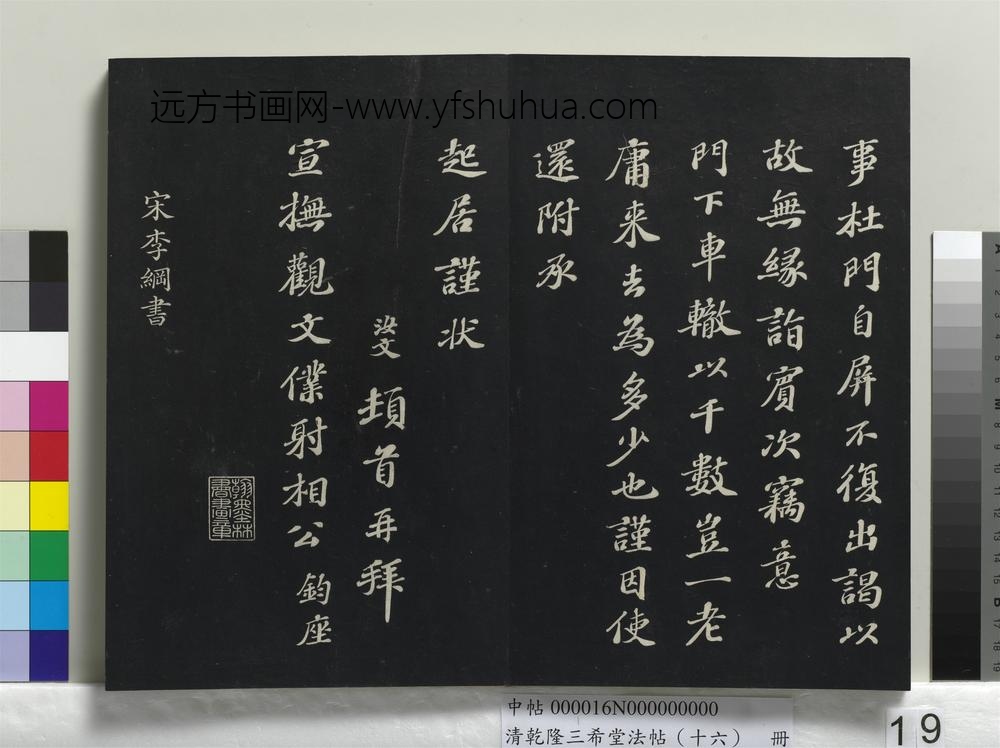 远方书画网-www.yfshuhua.com
事杜門自屏不復出謁以
故無緣詣賓次竊意
門下車轍以千數豈一老
庸来去為多少也謹因使
還附承
起居謹状
汝文頓首再拜
宣撫觀文僕射相公鈞座
宋李綱書
翰墨林
書畫章
中帖000016N000000000
清乾隆三希堂法帖（十六） 冊
19